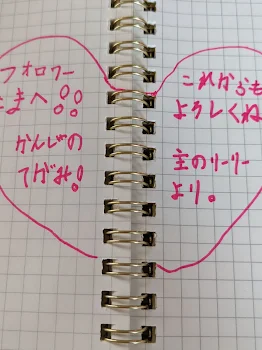 フォロワー
さまへ!!
かんじの
てがみ!
これからも
よろしくね
主のリーリー
より。